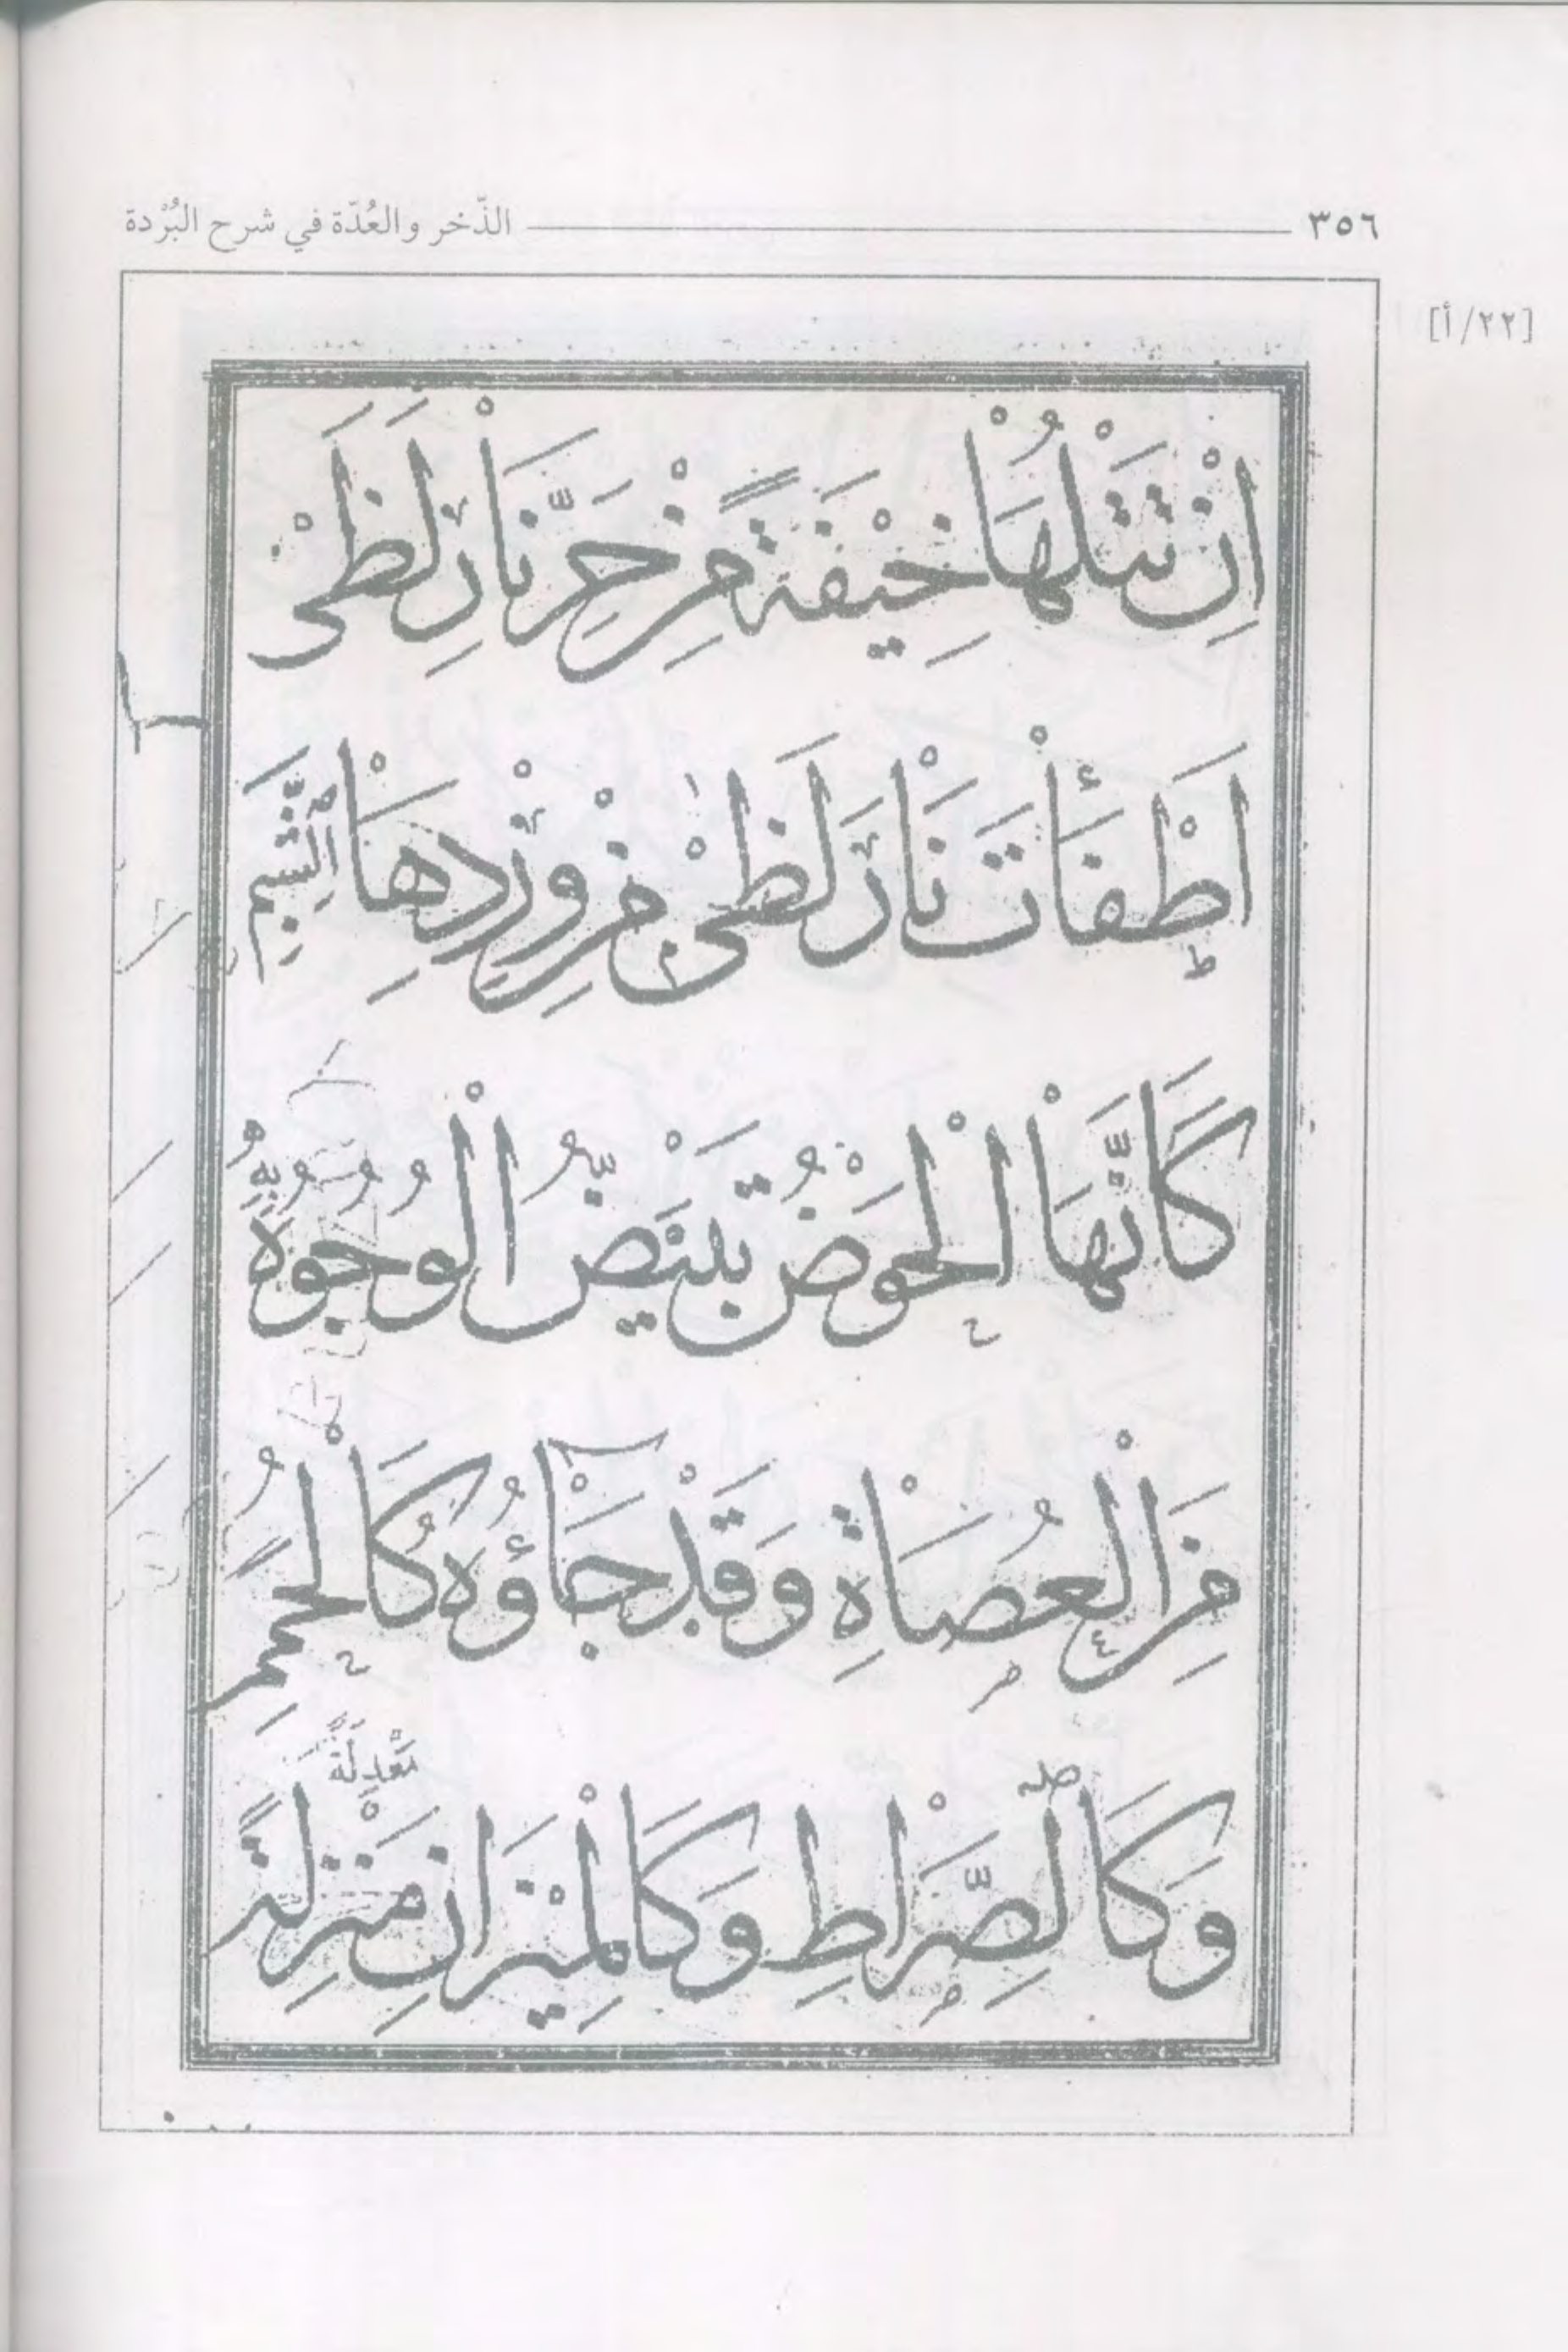 ٣٥٦ الذّخر والعُدّة في شرح البُرْدة
[٢٢/أ]
اِنْ تَتْلُهَا خِيْفَةً مِنْ حَرِّ نَارِ لَظَى
اَطْفَأْتَ نَارَ لَظَى مِنْ وِرْدِهَا الشَّبِمِ
كَاَنَّهَا الْحَوْضُ تَبْيَضُّ الْوُجُوْهُ بِهِ
مِنَ الْعُصَاةِ وَقَدْ جَآؤُهُ كَالْحُمَمِ
مَعْدِلَةً
وَكَالصِّرَاطِ وَكَالْمِيْزَانِ مَنْزِلَةً